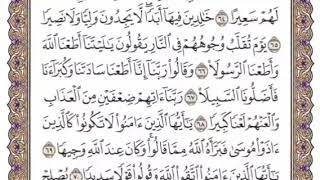 لَهُمْ سَعِيرًا ٦٤ خَالِدِينَ فِيهَا أَبَدًا لَّا يَجِدُونَ وَلِيًّا وَلَا نَصِيرًا
٦٥ يَوْمَ تُقَلَّبُ وُجُوهُهُمْ فِي النَّارِ يَقُولُونَ يَالَيْتَنَا أَطَعْنَا اللَّهَ
وَأَطَعْنَا الرَّسُولَا ٦٦ وَقَالُوا رَبَّنَا إِنَّا أَطَعْنَا سَادَتَنَا وَكُبَرَاءَنَا
فَأَضَلُّونَا السَّبِيلَا ٦٧ رَبَّنَا آتِهِمْ ضِعْفَيْنِ مِنَ الْعَذَابِ
وَالْعَنْهُمْ لَعْنًا كَبِيرًا ٦٨ يَاأَيُّهَا الَّذِينَ آمَنُوا لَا تَكُونُوا كَالَّذِينَ
آذَوْا مُوسَى فَبَرَّأَهُ اللَّهُ مِمَّا قَالُوا وَكَانَ عِندَ اللَّهِ وَجِيهًا ٦٩
يَاأَيُّهَا الَّذِينَ آمَنُوا اتَّقُوا اللَّهَ وَقُولُوا قَوْلًا سَدِيدًا ٧٠ يُصْلِحْ